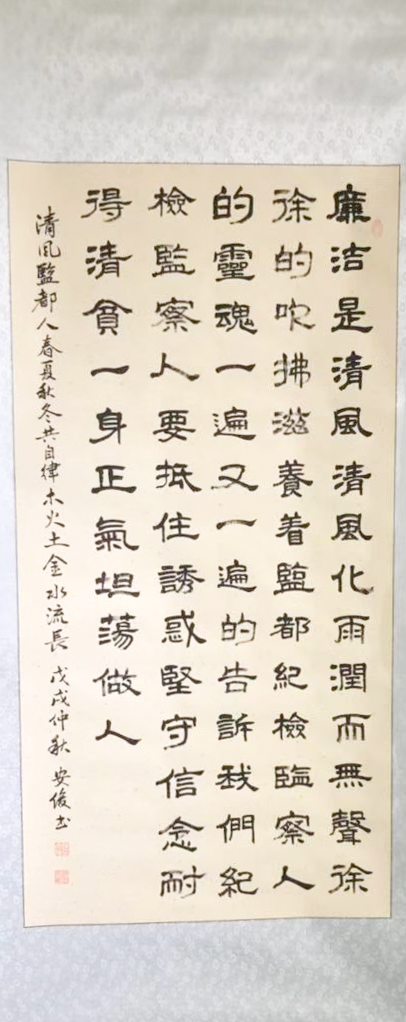 廉洁是清風清風化雨潤而無聲徐
徐的吹拂滋養着監都紀檢臨察人
的靈魂一遍又一遍的告訴我們紀
檢監察人要抵住誘惑堅守信念耐
得清貧一身正氣坦蕩做人
清风監都人春夏秋冬共自律木火土金水流長 戊戌仲秋 安俊书